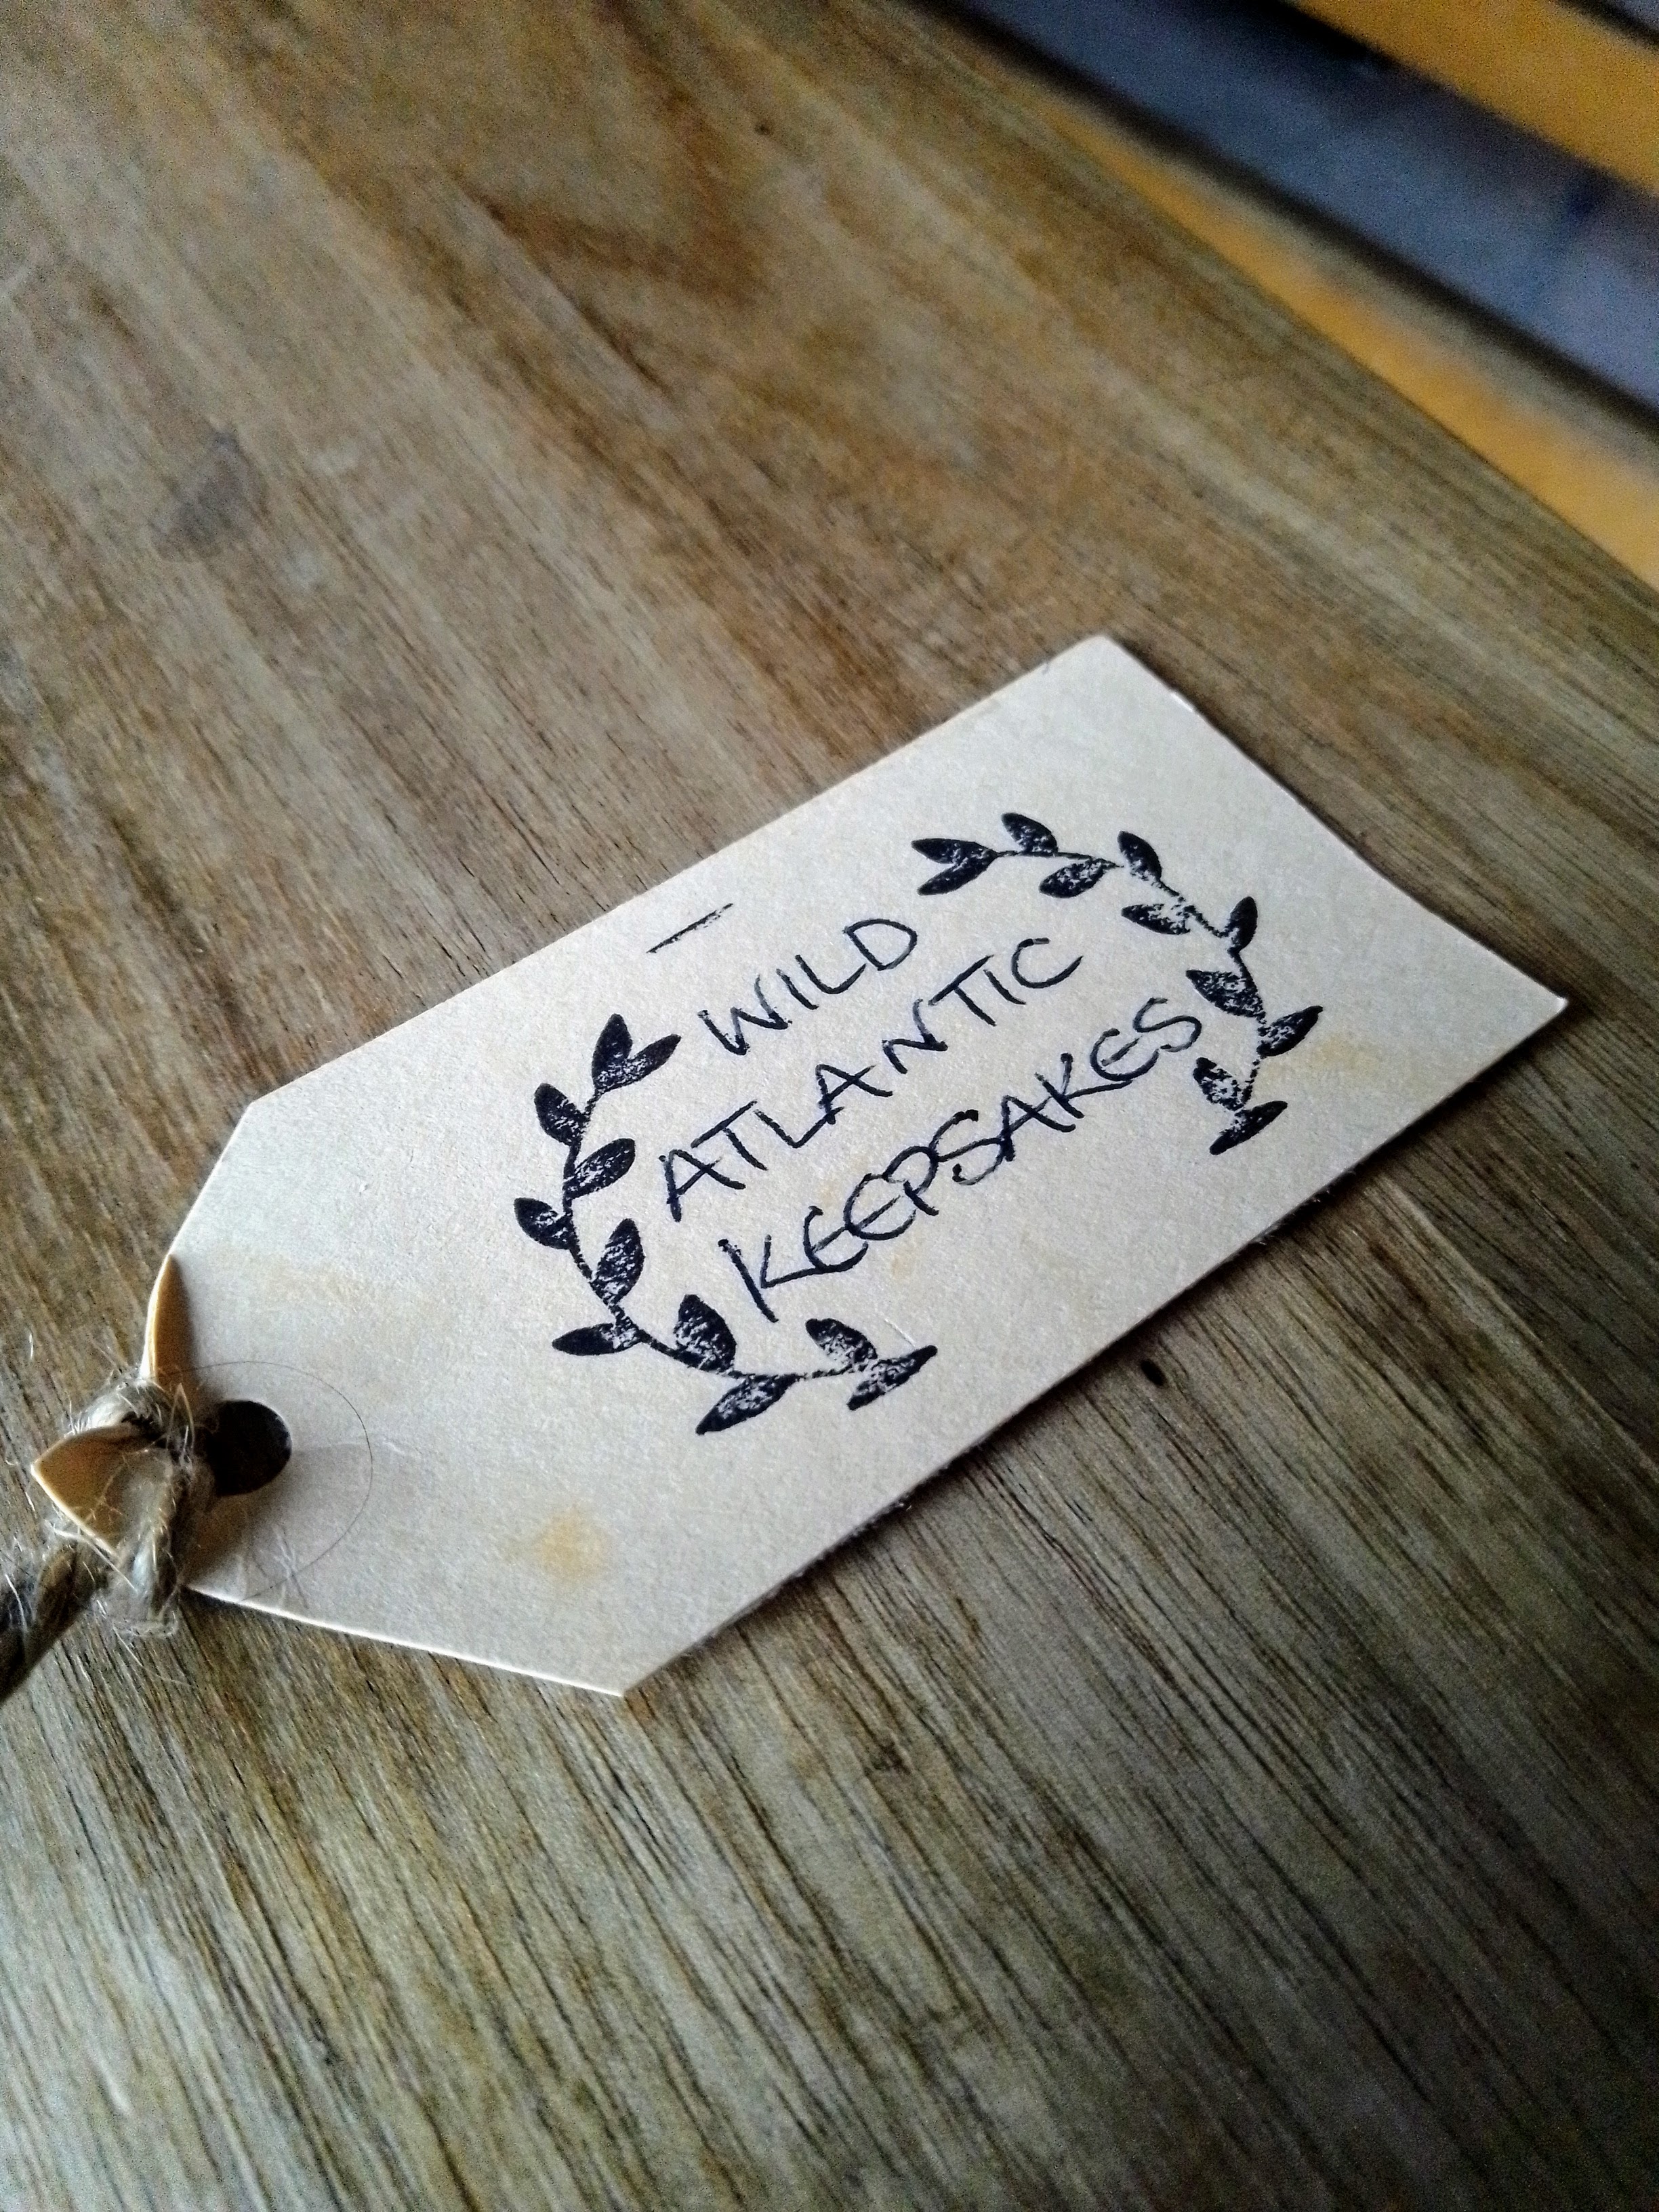 WILD
ATLANTIC
KEEPSAKES